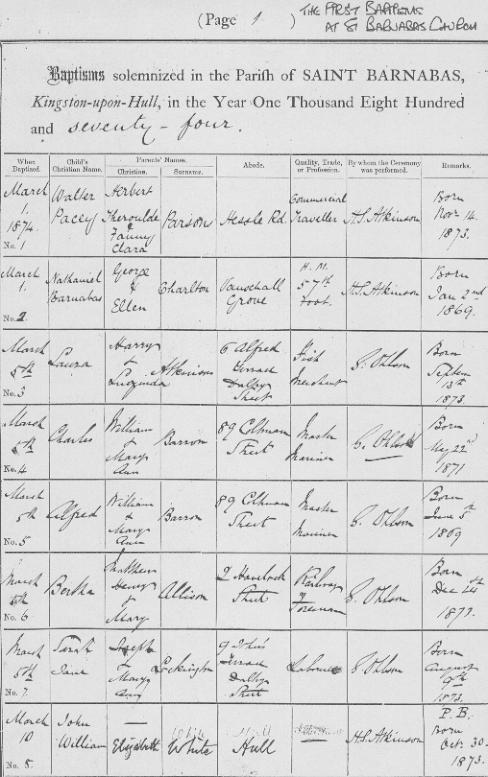 (Page 1)
THE FIRST BAPTISMS
AT ST BARNABAS CHURCH
Baptisms solemnized in the Parish of SAINT BARNABAS,
Kingston-upon-Hull, in the Year One Thousand Eight Hundred
and seventy-four.
When Baptized. Child's Christian Name. Parents' Names. Christian. Surname. Abode. Quality, Trade, or Profession. By whom the Ceremony was performed. Remarks.
March 1. 1874. No. 1 Walter Pacey Herbert & Fanny Clara Parson Hessle Rd. Commercial Traveller H.S. Atkinson Born Nov. 14. 1873.
March 1. No. 2 Nathaniel Barnabas George & Ellen Charlton Vauxhall Grove H.M. 57th Foot. H.S. Atkinson Born Jan 2nd 1869.
March 5th No. 3 Laura Harry & Atkinson 6 Alfred Terrace Dalby Street Fish Merchant G. Ohlson Born Septem 13th 1873.
March 5th No. 4 Charles William & Mary Ann Barron 89 Coltman Street Master Mariner G. Ohlson Born May 22nd 1871
March 5th No. 5 Alfred William & Mary Ann Barron 89 Coltman Street Master Mariner G. Ohlson Born June 5th 1869
March 5th No. 6 Bertha Matthew Henry & Mary Allison 2 Havelock Street Railway Foreman G. Ohlson Born Dec 1872.
March 5th No. 7. Sarah Jane Joseph & Mary Ann Lockington 9 John's Terrace Dalby Street Labourer G. Ohlson Born August 9th 1873.
March 10 No. 8. John William — Elizabeth White Hull H.S. Atkinson P.B. Born Oct. 30. 1873.